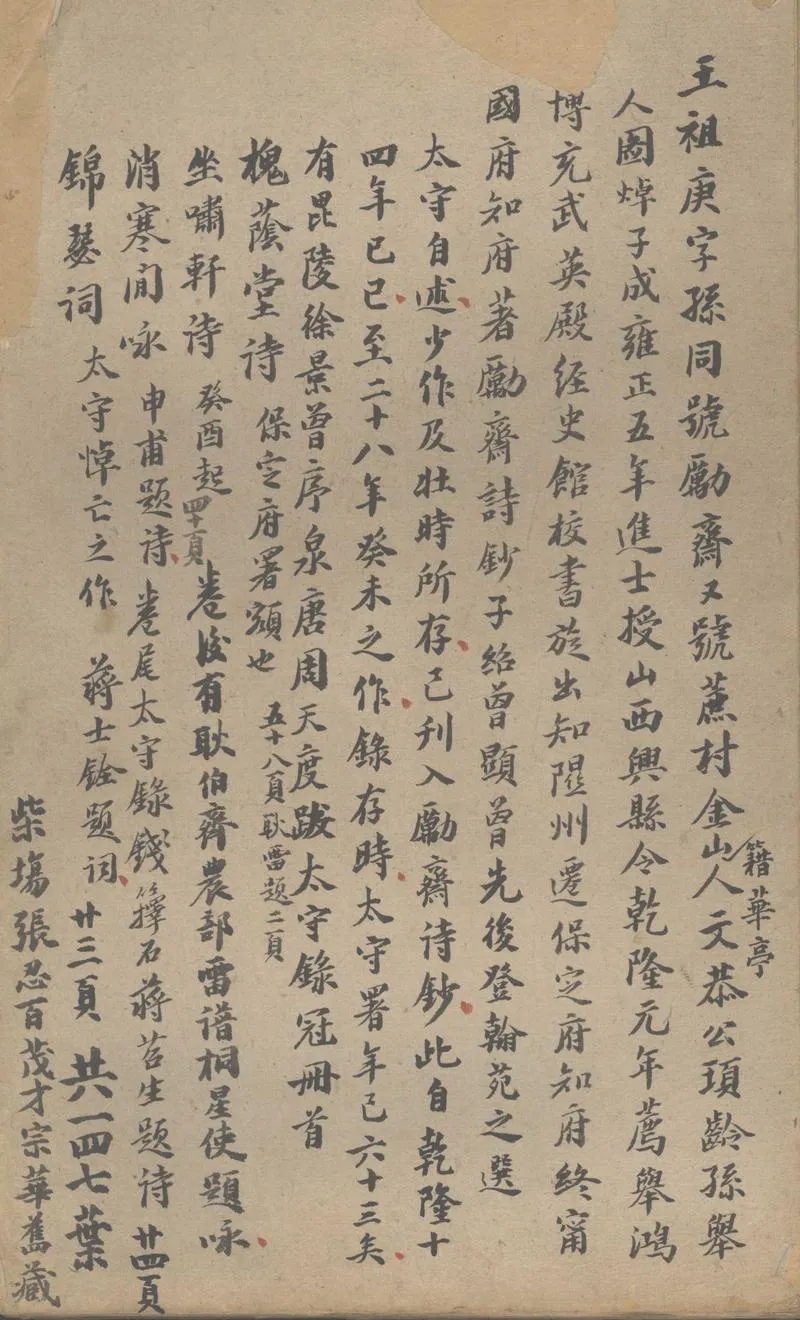 王祖庚字孫同號勵齋又號蔗村金山人文恭公頊齡孫舉
籍華亭
人圖焯子成雍正五年進士授山西興縣令乾隆元年薦舉鴻
博充武英殿经史館校書旋出知隰州遷保定府知府終甯
國府知府著勵齋詩鈔子紹曾顯曾先後登翰苑之選
太守自述少作及壯時所存已刊入勵齋诗鈔此自乾隆十
四年己巳至二十八年癸未之作錄存時太守署年已六十三矣
有毘陵徐景曾序泉唐周天度跋太守錄冠冊首
槐蔭堂诗 保定府署額也 五十八頁耿雷題二頁
坐嘯軒诗 癸酉起四十頁 卷後有耿伯齊農部雷谱桐星使題咏
消寒闲咏 申甫題诗卷尾太守錄錢籜石蔣苕生題诗 廿四頁
錦瑟词 太守悼亡之作 蔣士銓題词 廿三頁 共一四七葉
柴塲張忍百茂才宗華舊藏